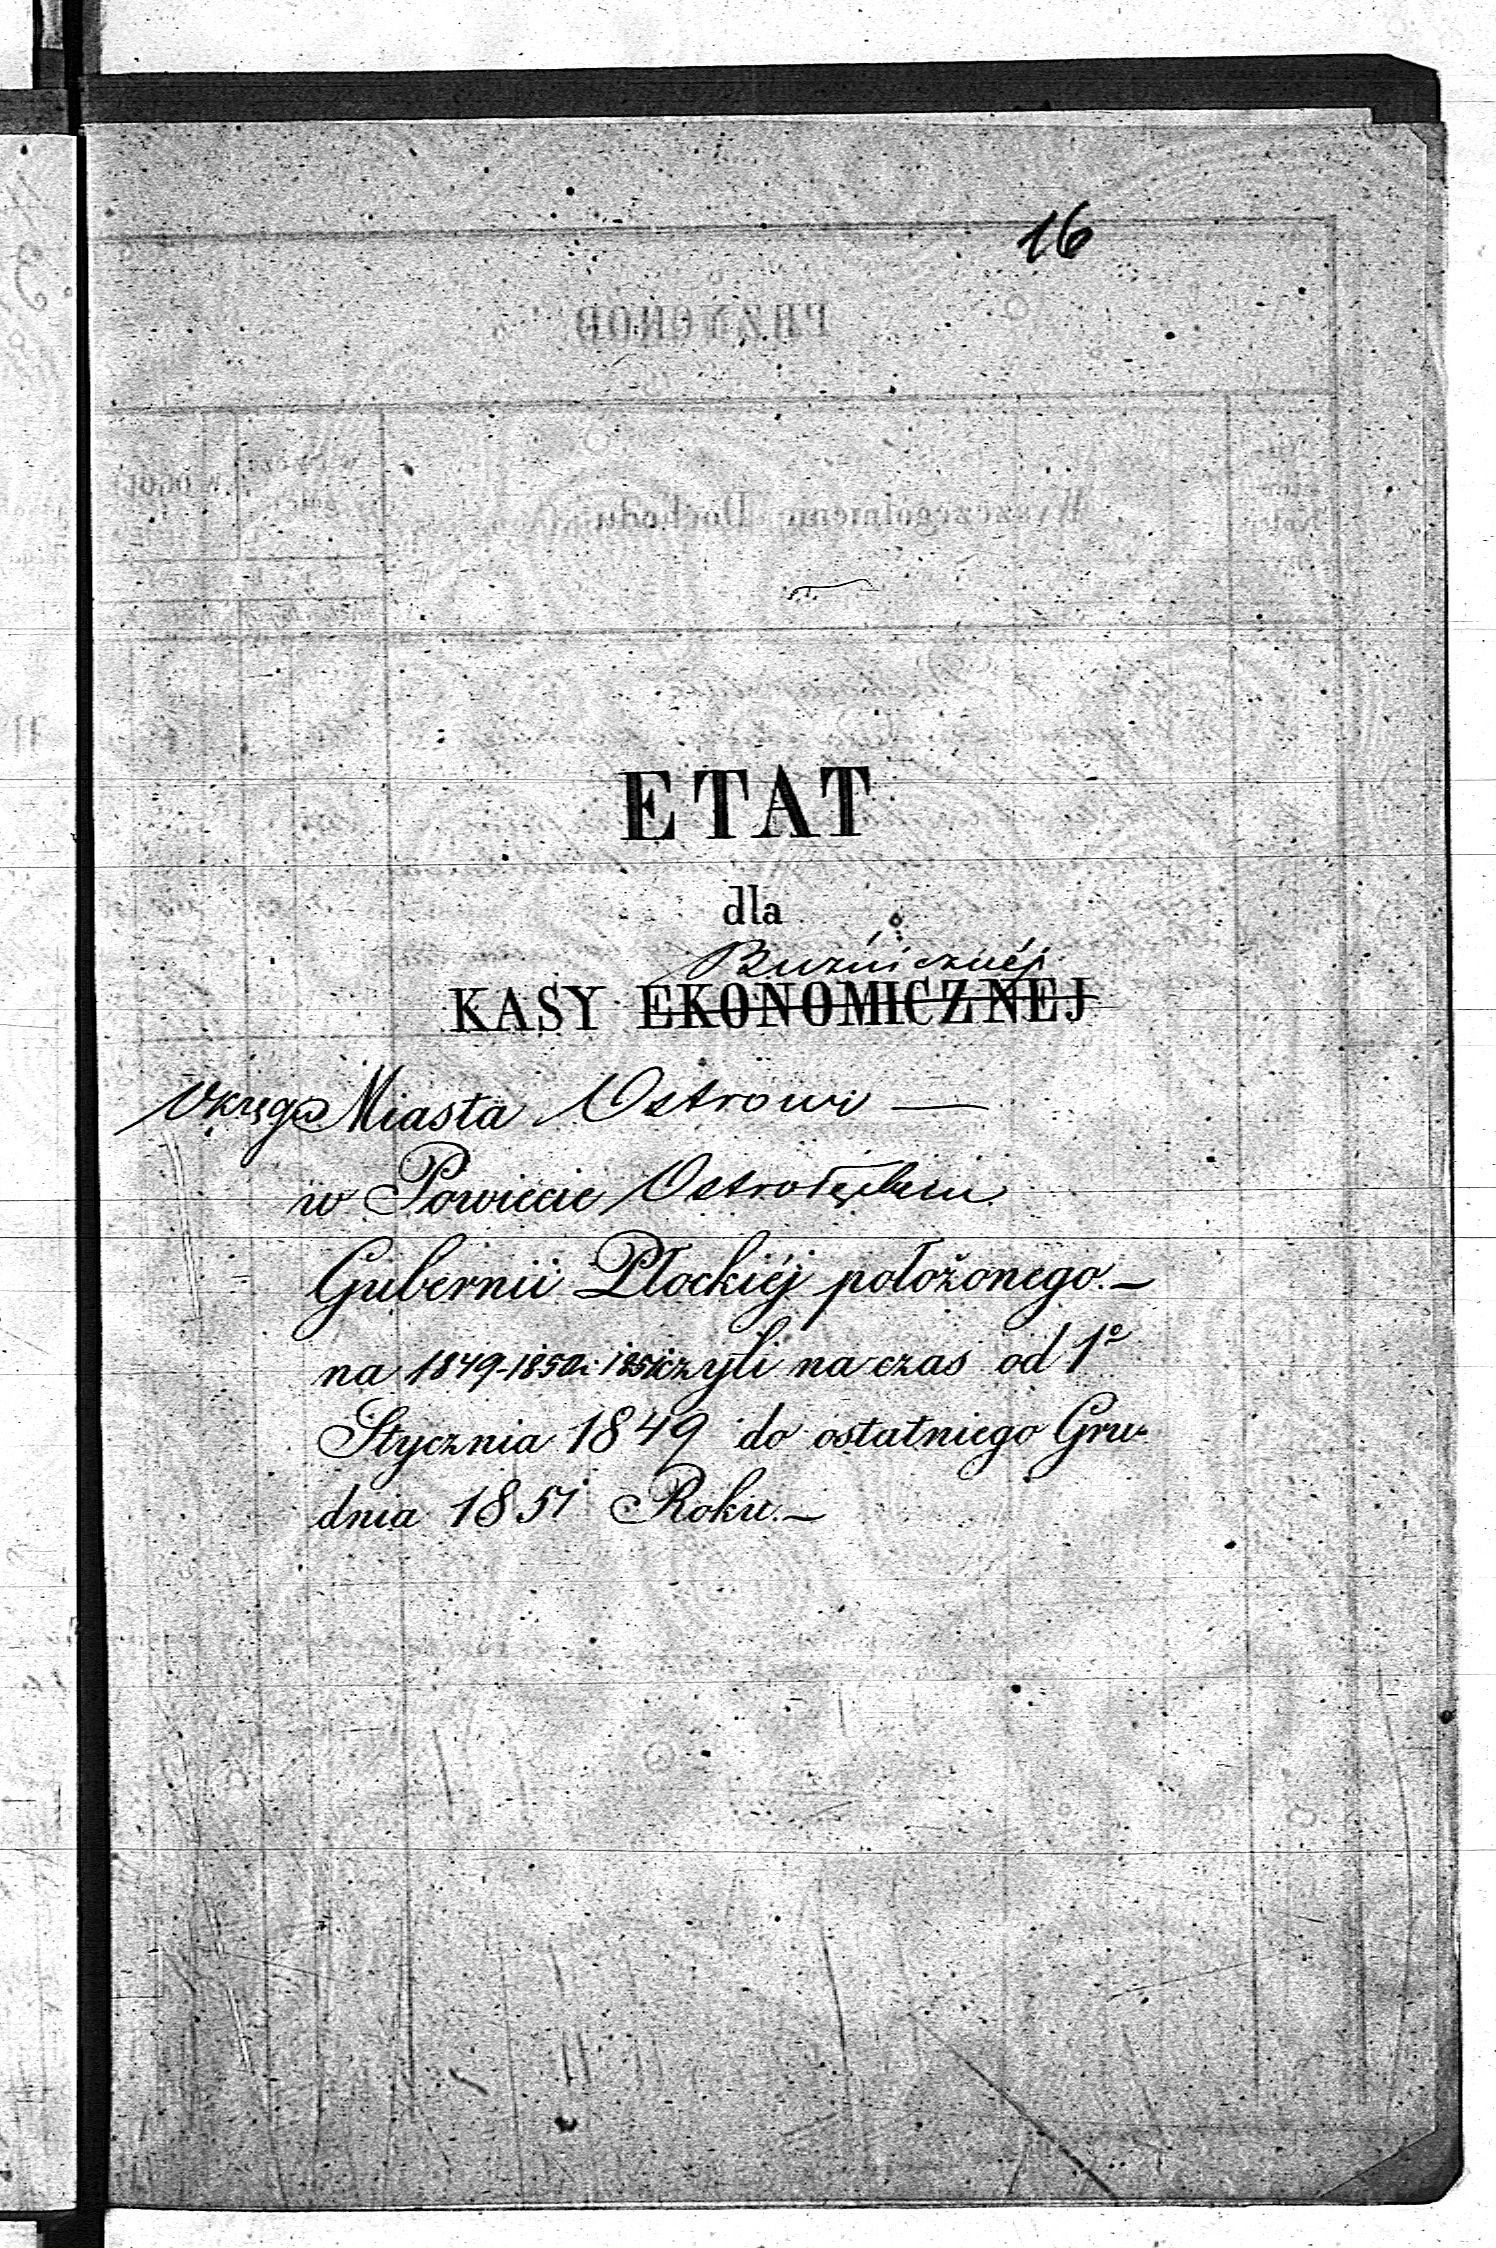 16
ETAT
dla
Bużnicznéj
KASY EKONOMICZNEJ
Okręgu Miasta Ostrowi —
w Powiecie Ostrołęckim
Gubernii Płockiéj położonego. —
na 1849-1850 i 1851 czyli na czas od 1º
Stycznia 1849 do ostatniego Gru-
dnia 1851 Roku. —